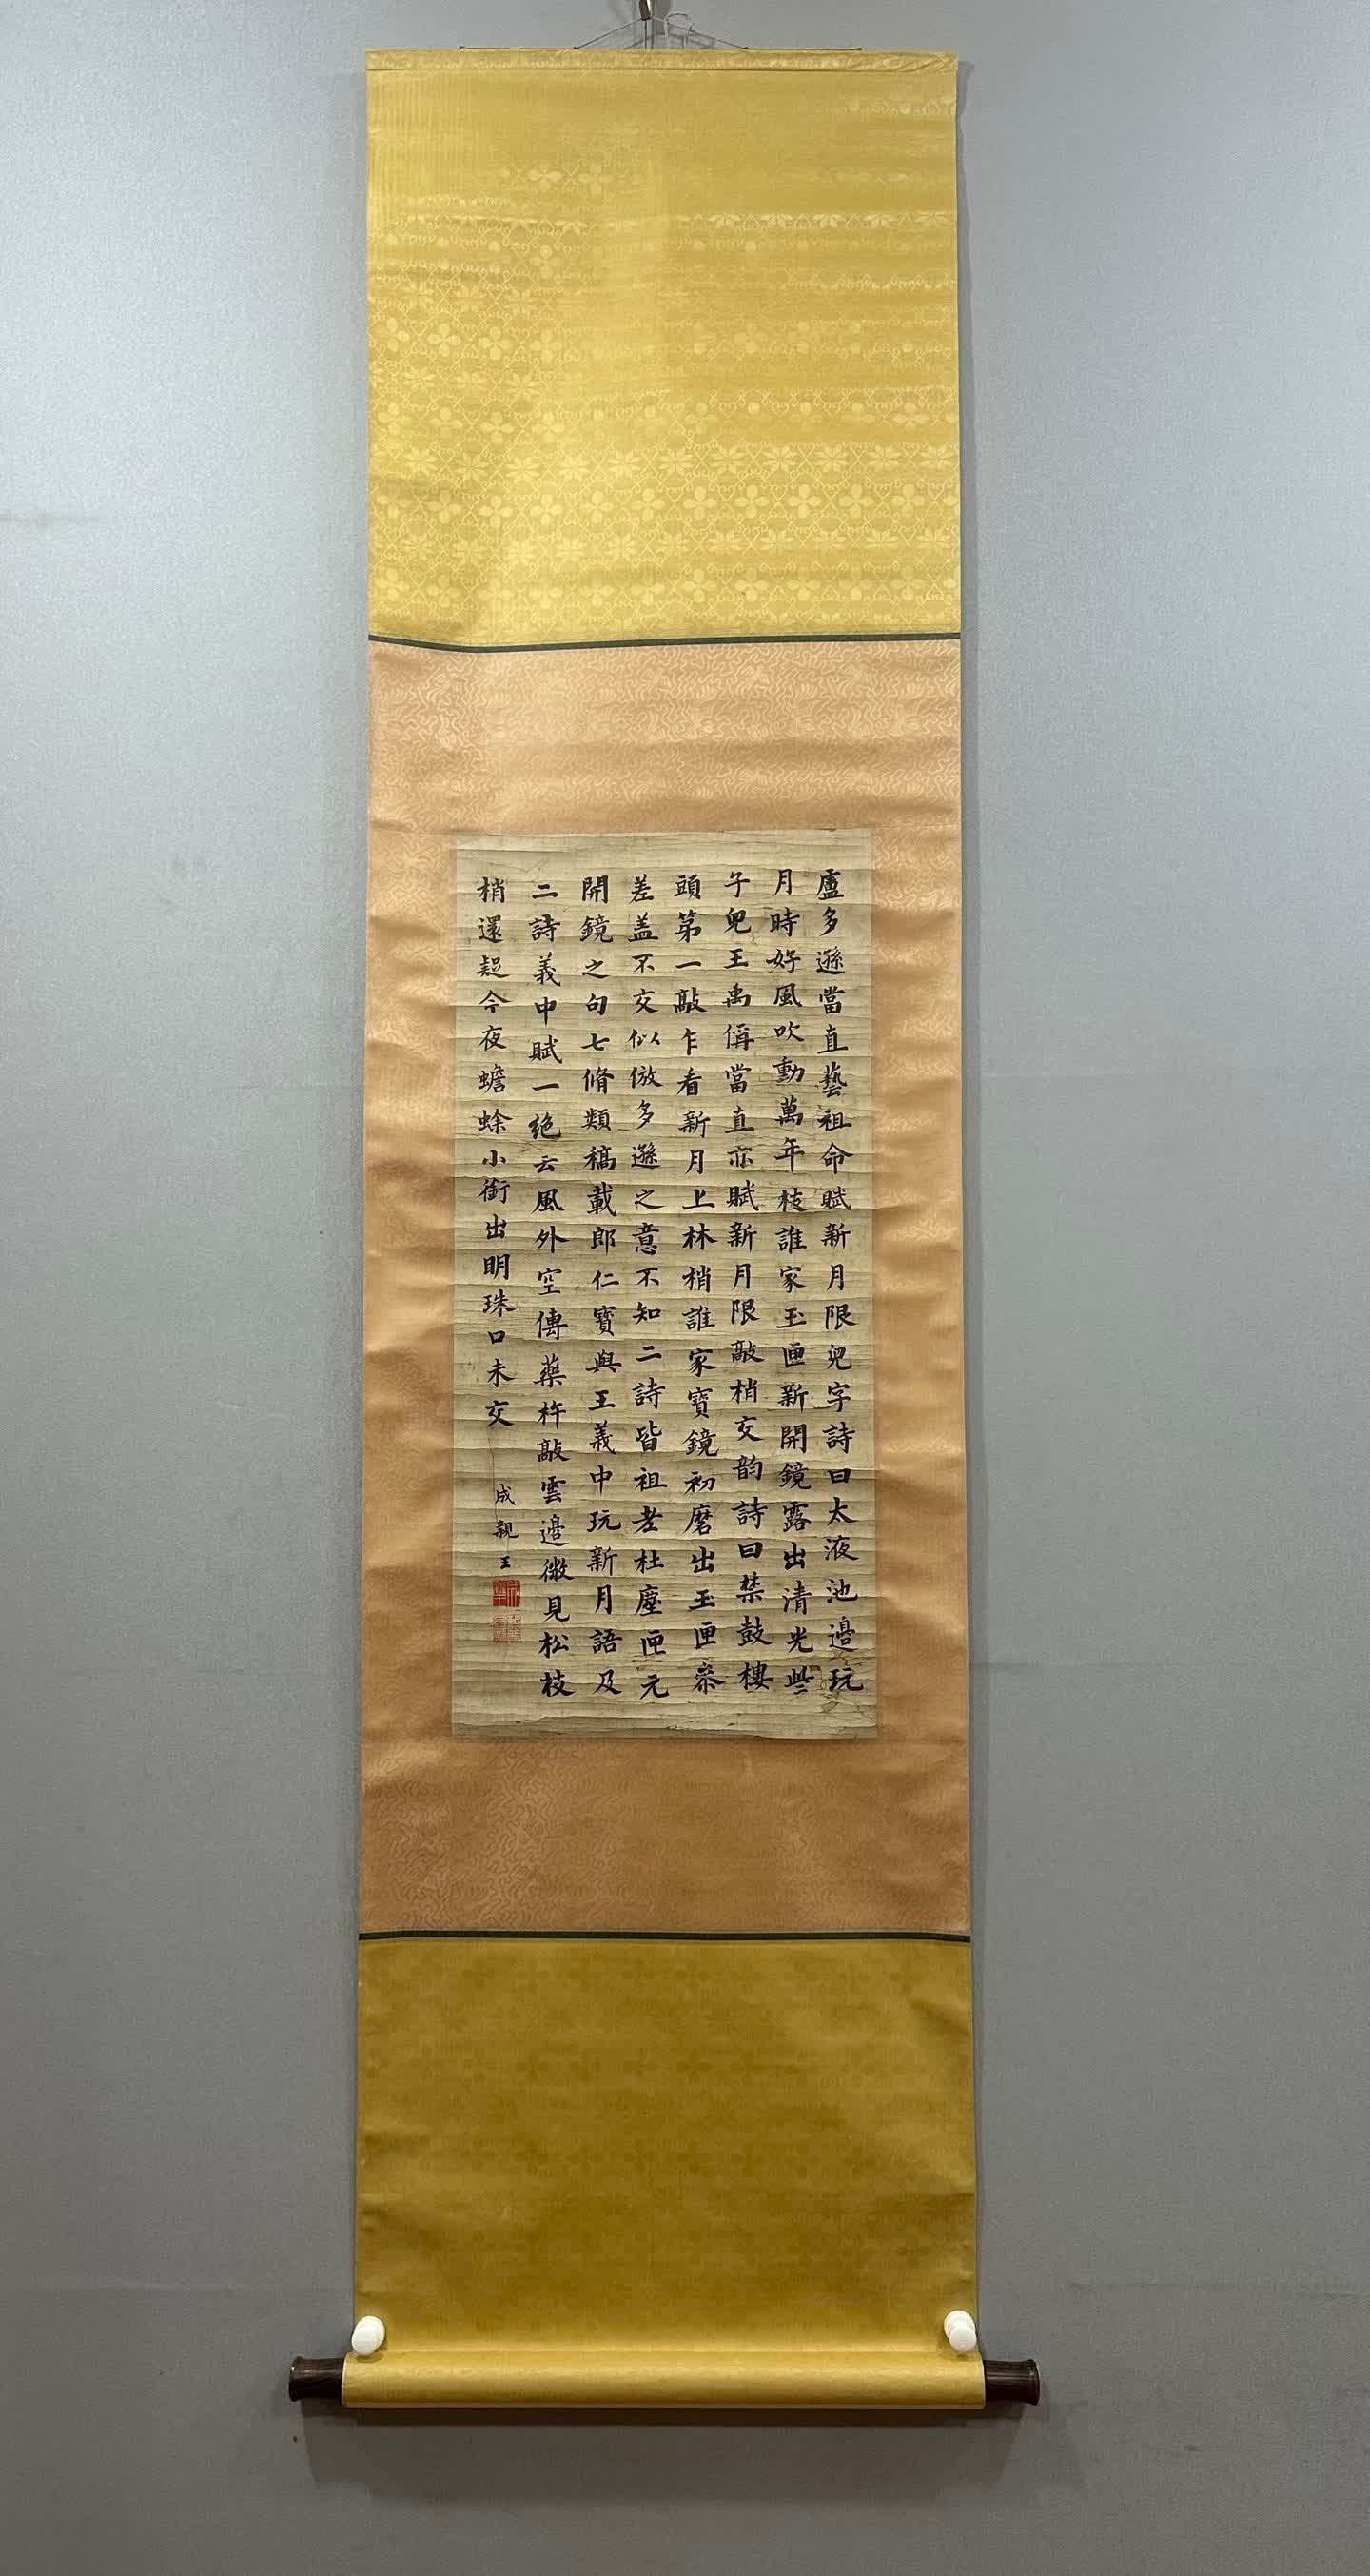 盧多遜當直藝祖命賦新月限兒字詩曰太液池邊玩
月時好風吹動萬年枝誰家玉匣新開鏡露出清光些
子兒王禹偁當直亦賦新月限敲梢交韵詩曰禁鼓樓
頭第一敲乍看新月上林梢誰家寶鏡初磨出玉匣叅
差盖不交似倣多遜之意不知二詩皆祖老杜塵匣元
開鏡之句七脩類稿載郎仁寶與王義中玩新月語及
二詩義中賦一絶云風外空傳藥杵敲雲邊微見松枝
梢還疑今夜蟾蜍小銜出明珠口未交
成親王